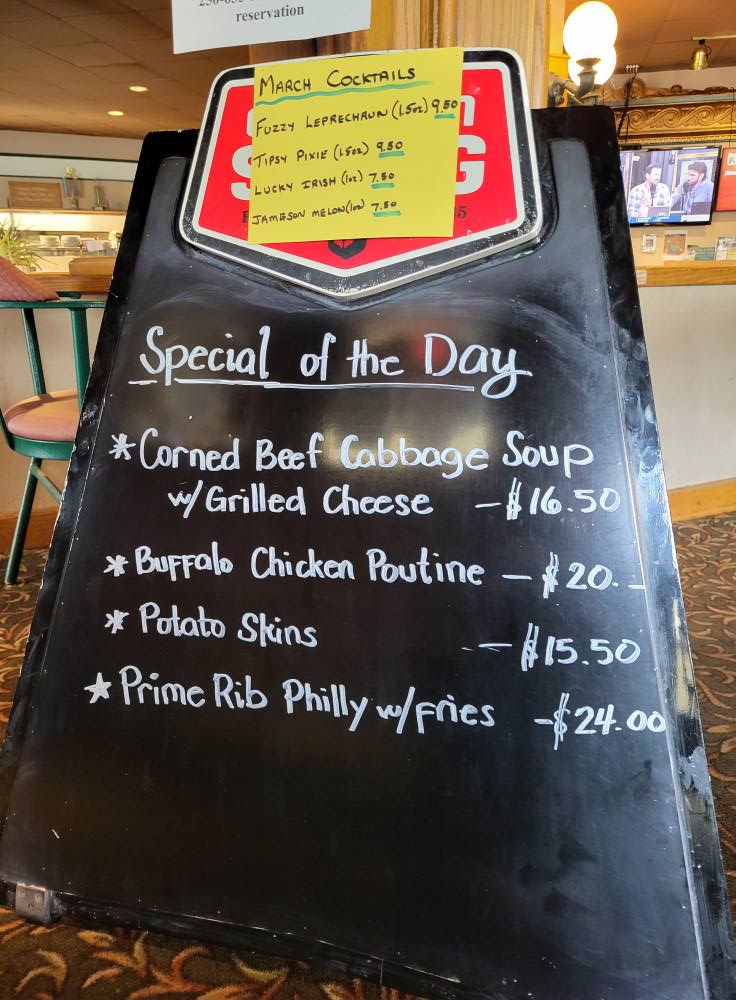 reservation
MARCH COCKTAILS
FUZZY LEPRECHAUN (1.5oz) 9.50
TIPSY PIXIE (1.5oz) 9.50
LUCKY IRISH (1oz) 7.50
JAMESON MELON (1oz) 7.50
Special of the Day
* Corned Beef Cabbage Soup
w/Grilled Cheese - $16.50
* Buffalo Chicken Poutine - $20.-
* Potato Skins - $15.50
* Prime Rib Philly w/fries - $24.00